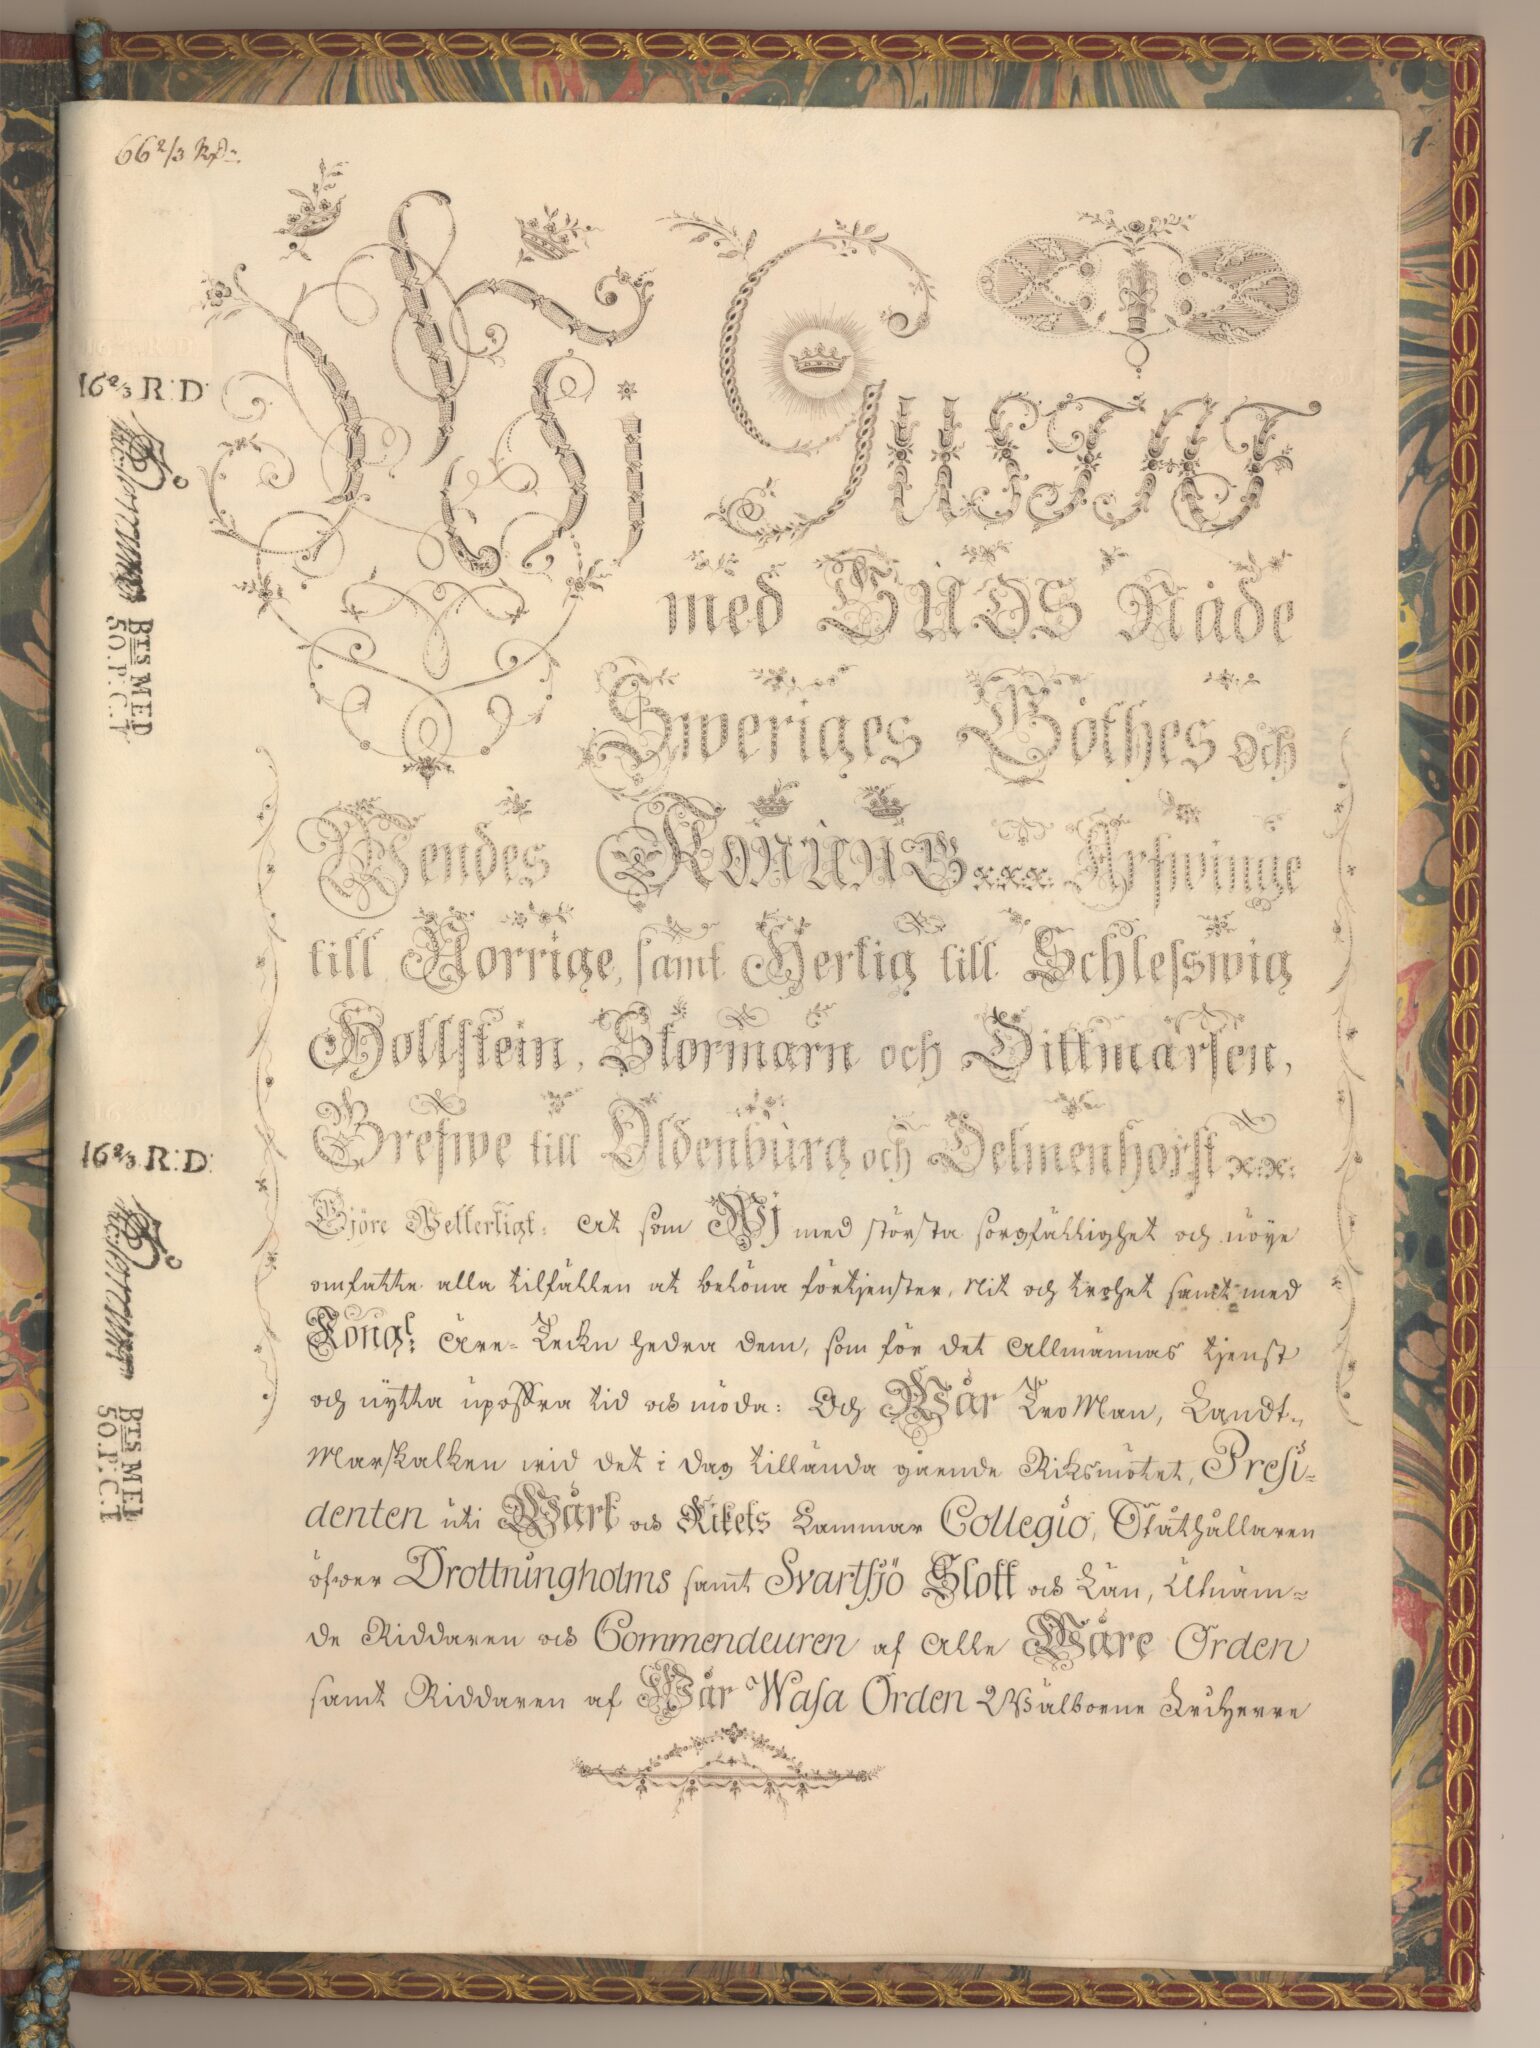 66 2/3 Rd:
1.
16 2/3 R:D:
BTS MED
50. P:C:T
16 2/3 R:D:
BTS MED
50. P:C:T
Wi GUSTAF
med GUDS Nåde
Sweriges Göthes och
Wendes KONUNG xxx. Arfwinge
till Norrige, samt Hertig till Schlesswig
Hollstein, Stormarn och Dittmarsen,
Grefwe till Oldenburg och Delmenhorst x.x:
Gjöre Wetterligt: at som Wj med största sorgfällighet och nöye
omfatte alla tilfällen at belöna förtjenster, Nit och trohet samt med
Kongl: Äre-Tecken hedra dem, som för det Allmännas tjenst
och nytta upoffra tid och möda: Och Wår Tro Man, Landt-
Marskalken wid det i dag tillända gående Riksmötet, Presi-
denten uti Wårt och Rikets Cammar Collegio, Ståthållaren
öfwer Drottningholms samt Svartsjö Slott och Län, Utnäm-
de Riddaren och Commendeuren af Alle Wåre Orden
samt Riddaren af Wår Wasa Orden Wälborne Friherre